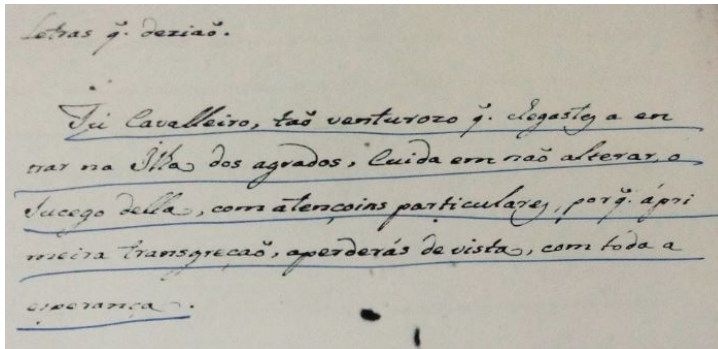 Letras q̃. deziaõ.
Tu Cavalleiro, taõ venturozo q̃. chegastes a en
trar na Ilha dos agrados, Cuida em naõ alterar, o
Sucego della, com atençoins particulares, porq̃. ápri
meira transgreçaõ, aperderás de vista, com toda a
esperança.